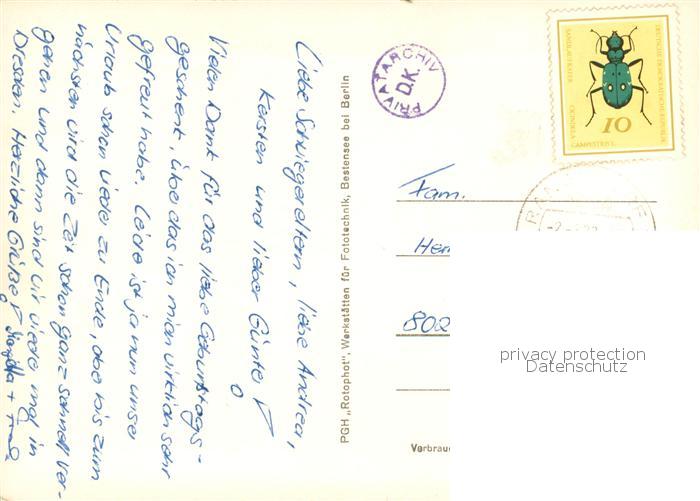 Liebe Schwiegereltern, liebe Andrea,
Kersten und lieber Günter!
Vielen Dank für das liebe Geburtstags-
geschenk, über das ich mich wirklich sehr
gefreut habe. Leider ist ja nun unser
Urlaub schon wieder zu Ende, aber bis zum
nächsten wird die Zeit schon ganz schnell ver-
gehen und dann sind wir wieder mal in
Dresden. Herzliche Grüße!
PGH „Rotophot", Werkstätten für Fototechnik, Bestensee bei Berlin
PRIVATARCHIV
D.K.
DEUTSCHE DEMOKRATISCHE REPUBLIK
SANDLAUFKÄFER
CICINDELA
CAMPESTRIS L.
10
Fam.
802
privacy protection
Datenschutz